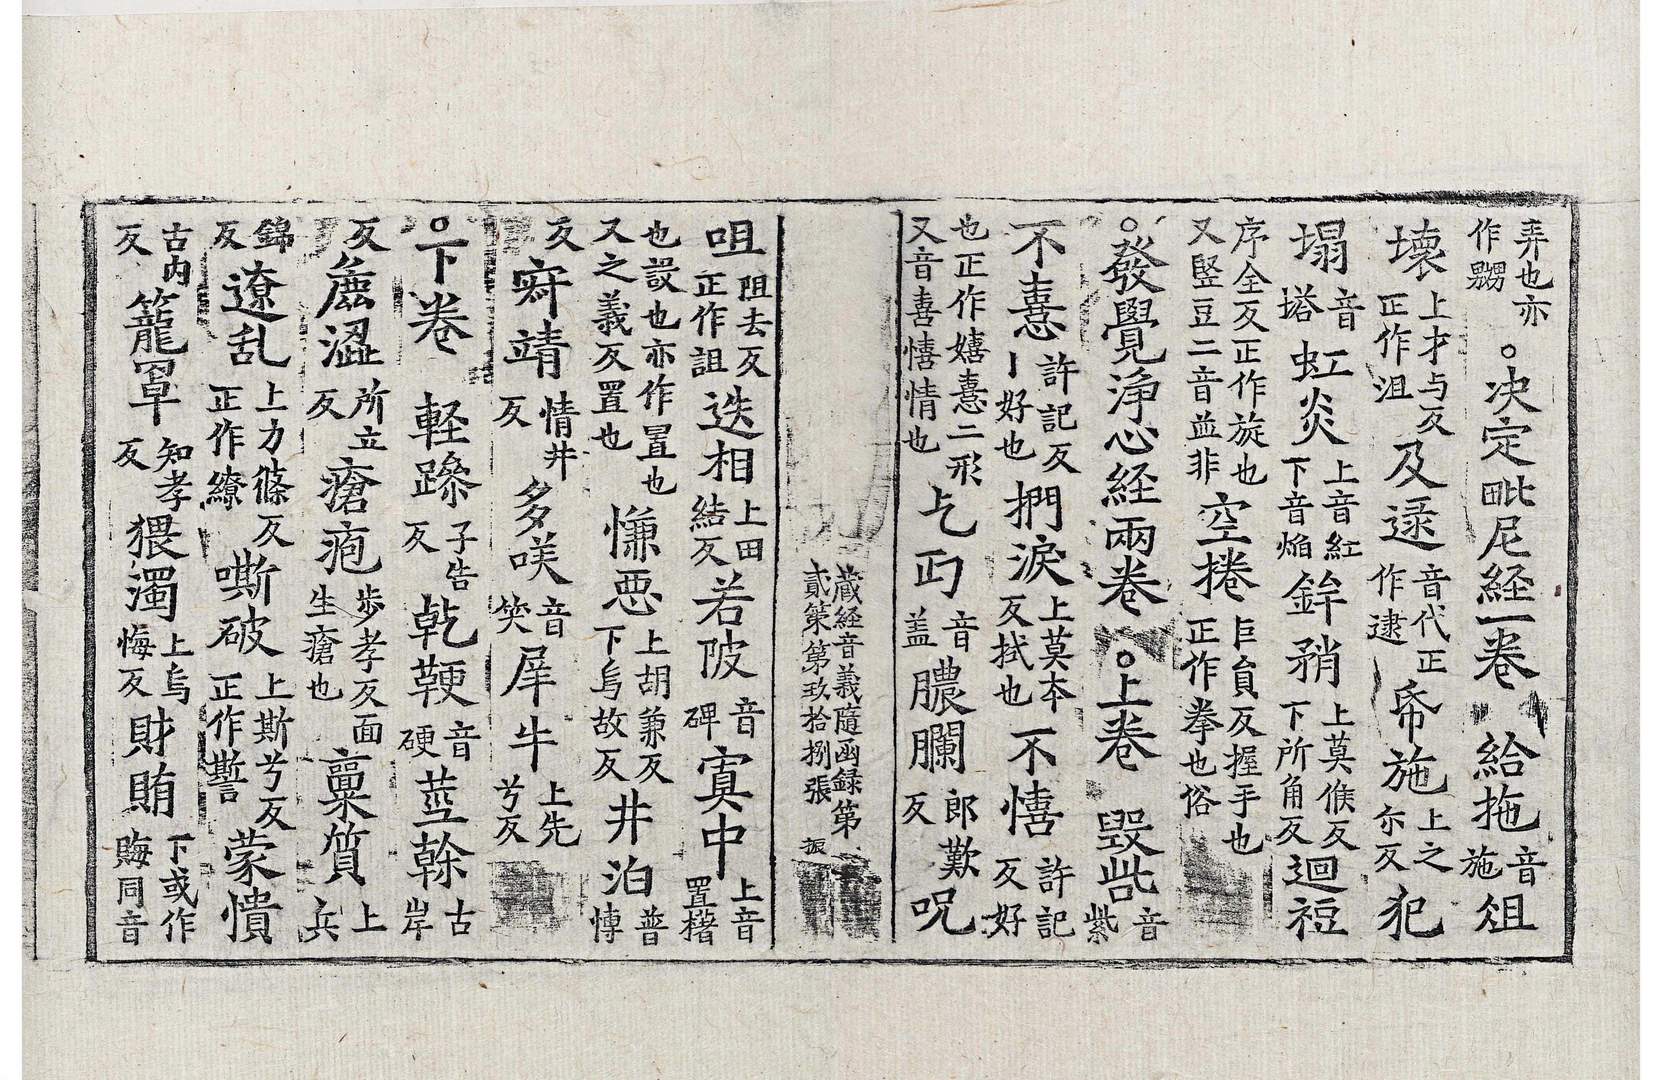 弄也亦作嬲○决定毗尼経一卷 給拖音施俎
壞上才与反正作沮及逯音代正作逮帋施上之尒反犯
塌音塔虹炎上音紅下音焔鉾矟上莫侯反下所角反迴䄈
序全反正作旋也又竪豆二音並非空捲巨貟反握手也正作拳也俗
○發覺淨心経兩卷 ○上卷 毀呰音紫
不憙許記反丨好也捫淚上莫夲反拭也不憘許記反好
也正作嬉憙二形又音喜憘情也乞丐音盖膿𦣱郎歎反呪
蔵経音義隨函録第貳筞第玖拾捌張 振
咀阻去反正作詛迭相上田結反若陂音碑寘中上音置𣚣
也設也亦作置也又之義反置也慊惡上胡兼反下烏故反井泊普愽
反㝛靖情井反多㗛音笑犀牛上先兮反
○下卷 軽躁子告反乾鞕音硬莖幹古岸
反麁澀所立反瘡疱步孝反面生瘡也稟質上兵
錦反遼乱上力條反正作繚嘶破上斯兮反正作㽄蒙憒
古内反籠罩知孝反猥濁上烏悔反財賄下或作䀲同音